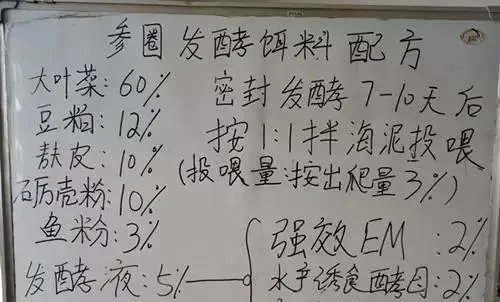 参圈发酵饵料配方
大叶菜:60%
豆粕:12%
麸皮:10%
砺壳粉:10%
鱼粉:3%
发酵液:5%
密封发酵7-10天后
按1:1拌海泥投喂
(投喂量:按出爬量3%)
强效EM:2%
水产诱食酵母:2%